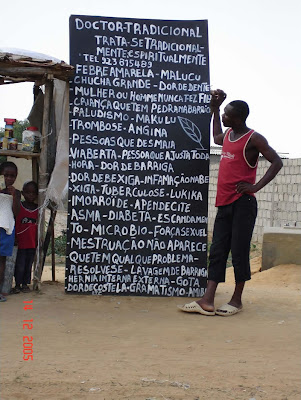 DOCTOR-TRADICIONAL
TRATA-SE TRADICIONAL-
MENTE E SPIRITUALMENTE
TEL 923615489
FEBRE AMARELA-MALUCU
CHUCHA GRANDE-DOR DE DENTE
MULHER OU HOMEM NUNCA FEZ FILHO
CRIANÇA QUE TEM PEDRA NA BARRIGA
PALUDISMO-MAKULU
TROMBOSE-ANGINA
PESSOAS QUE DESMAIA
VIABERTA-PESSOA QUE AJUSTA TODA
HORA-DOR DE BARRIGA
DOR DE BEXIGA-INFAMAÇÃO NA BE
XIGA-TUBERCULOSE-LUKIKA
IMORROIDE-APENDECITE
ASMA-DIABETA-ESCANDAMEN
TO-MICROBIO-FORÇA SEXUEL
MESTRUAÇÃO NÃO APARECE
QUE TEM QUALQUE PROBLEMA-
RESOLVESE-LAVAGEM DE BARRIGA
HERNIA INTERNA EXTERNA-GOTA
DOR DE COSTELA-GRAMATISMO-
14 12 2005